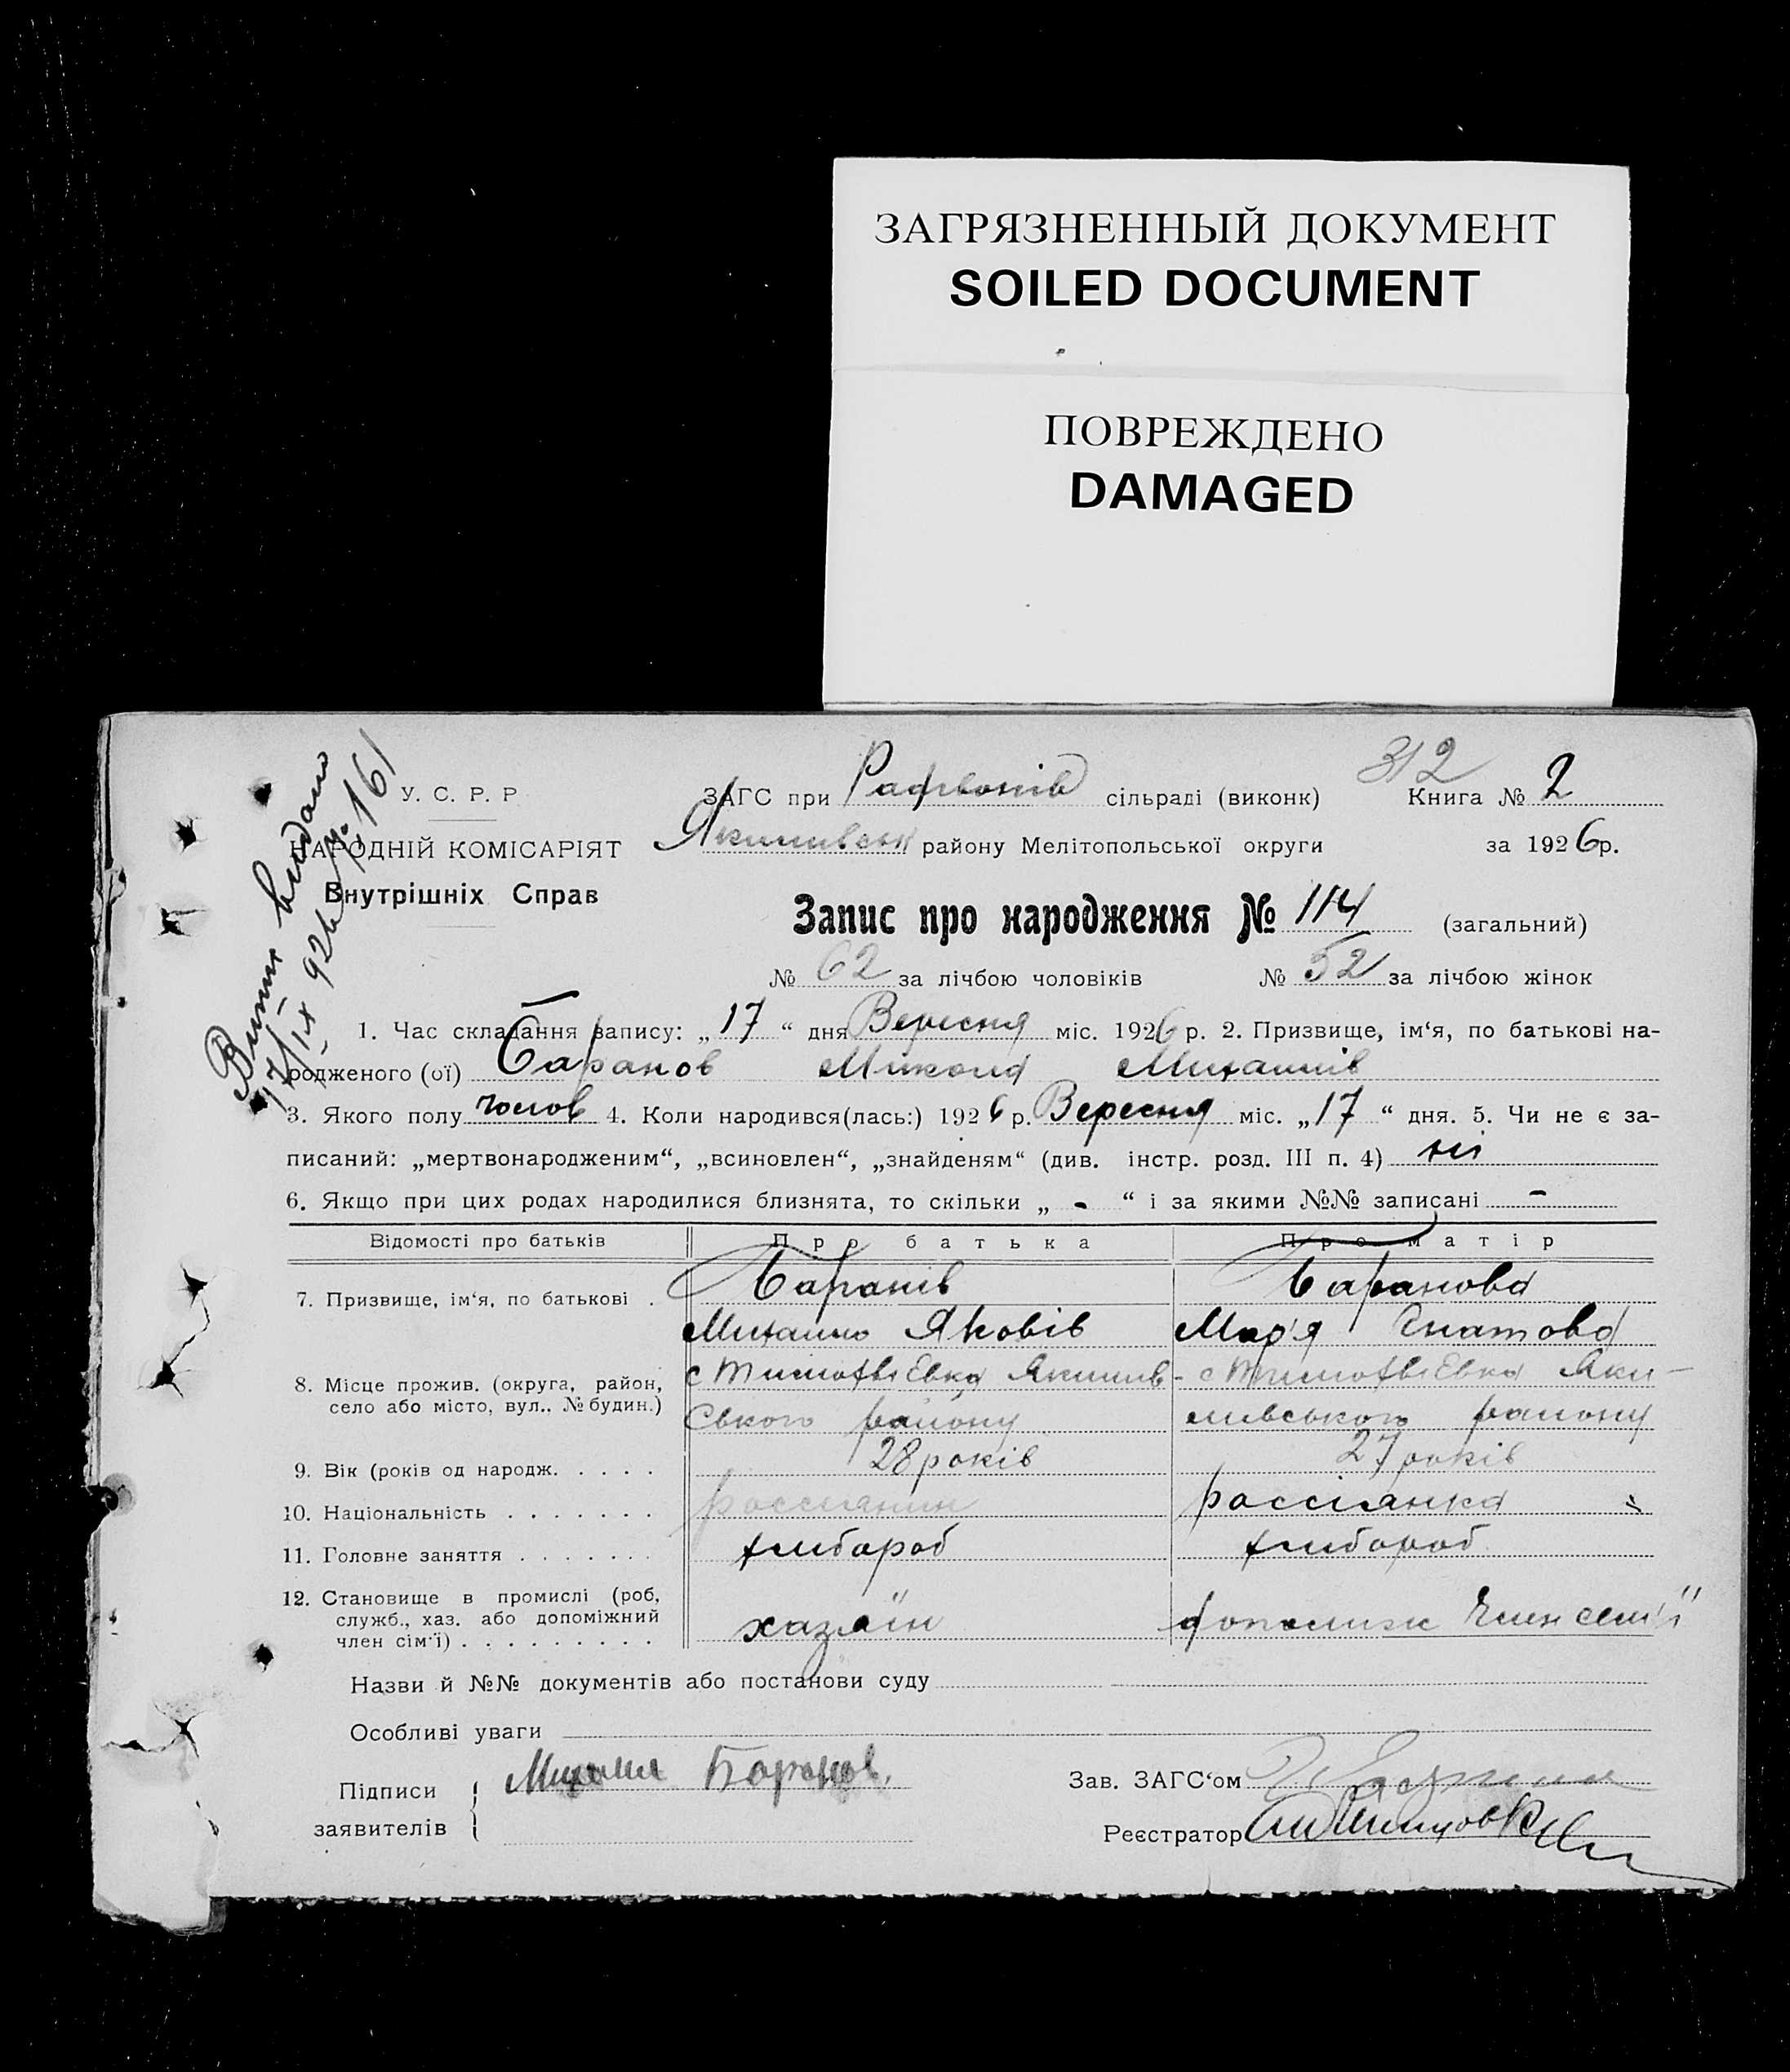 ЗАГРЯЗНЕННЫЙ ДОКУМЕНТ
SOILED DOCUMENT
ПОВРЕЖДЕНО
DAMAGED
312
У. С. Р. Р
ЗАГС при сільраді (виконк) Книга № 2
НАРОДНІЙ КОМІСАРІЯТ
Якимівськ району Мелітопольської округи за 1926р.
Внутрішніх Справ
Витяг видано
17/IX 926 р. № 161
Запис про народження № 114 (загальний)
№ 62 за лічбою чоловіків № 52 за лічбою жінок
1. Час складання запису: „ 17 “ дня Вересня міс. 1926 р. 2. Призвище, ім‘я, по батькові на-
родженого (ої) Баранов Микола Михайлів
3. Якого полу чолов 4. Коли народився(лась:) 1926 р. Вересня міс. „ 17 “ дня. 5. Чи не є за-
писаний: „мертвонародженим“, „всиновлен“, „знайденям“ (див. інстр. розд. III п. 4) ні
6. Якщо при цих родах народилися близнята, то скільки „ - “ і за якими №№ записані -
Відомості про батьків Про батька Про матір
7. Призвище, ім‘я, по батькові . Баранів Баранова
Михайло Яковів Мар'я Гнатова
8. Місце прожив. (округа, район, село або місто, вул., № будин.) с Тимофвієвка Якимів- с Тимофвієвка Яки-
ського району мивського району
9. Вік (років од народж. . . . . 28 років 27 років
10. Національність . . . . . . . россіянин россіянка
11. Головне заняття . . . . . . . хлибороб хлибороб
12. Становище в промислі (роб,
служб., хаз. або допоміжний
член сім'ї) . . . . . . . . . хазяїн допомижн член семії
Назви й №№ документів або постанови суду
Особливі уваги
Підписи заявителів Михаил Баранов. Зав. ЗАГС‘ом
Реєстратор